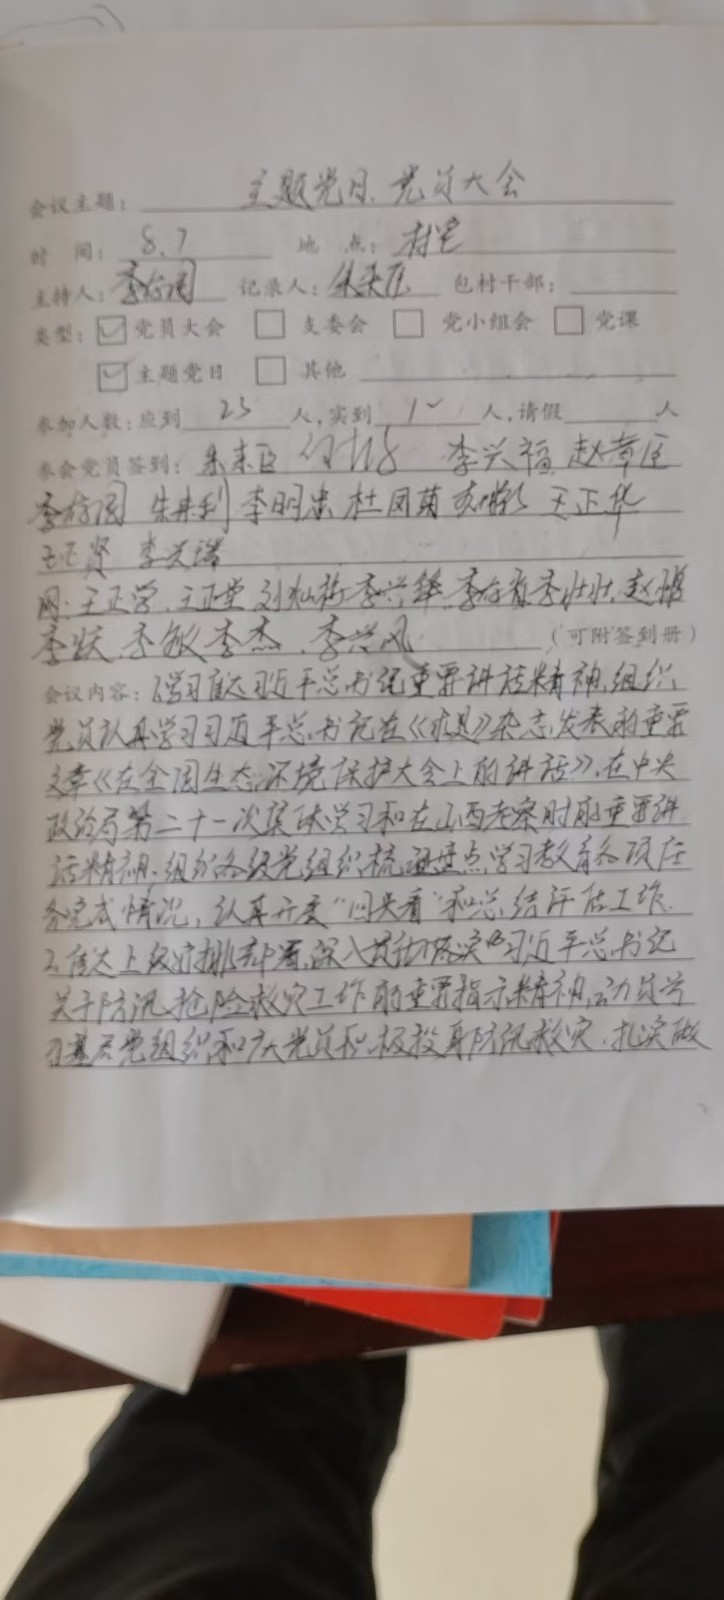 会议主题: 主题党日、党员大会
时 间: 8.7 地 点: 村室
主持人: 李 记录人: 朱来臣 包村干部:
类型: 党员大会 支委会 党小组会 党课
主题党日 其他
参加人数: 应到 23 人, 实到 人, 请假 人
参会党员签到: 朱来臣 李兴福 赵章臣
李 朱来利 李明忠 杜凤菊 王正华
王正贤 李兴
网: 王正学、王正堂 刘灿 李兴 李存 李壮壮、赵
李跃、李敏 李杰、李兴风 (可附签到册)
会议内容: 1、学习传达习近平总书记重要讲话精神,组织
党员认真学习习近平总书记在《求是》杂志发表的重要
文章《在全国生态环境保护大会上的讲话》,在中央
政治局第二十一次集体学习和在山西考察时的重要讲
话精神、组织各级党组织梳理盘点学习教育各项任
务完成情况,认真开展“回头看”和总结评估工作、
2、传达上级安排部署,深入贯彻落实习近平总书记
关于防汛抢险救灾工作的重要指示精神,动员学
习基层党组织和广大党员积极投身防汛救灾、扎实做